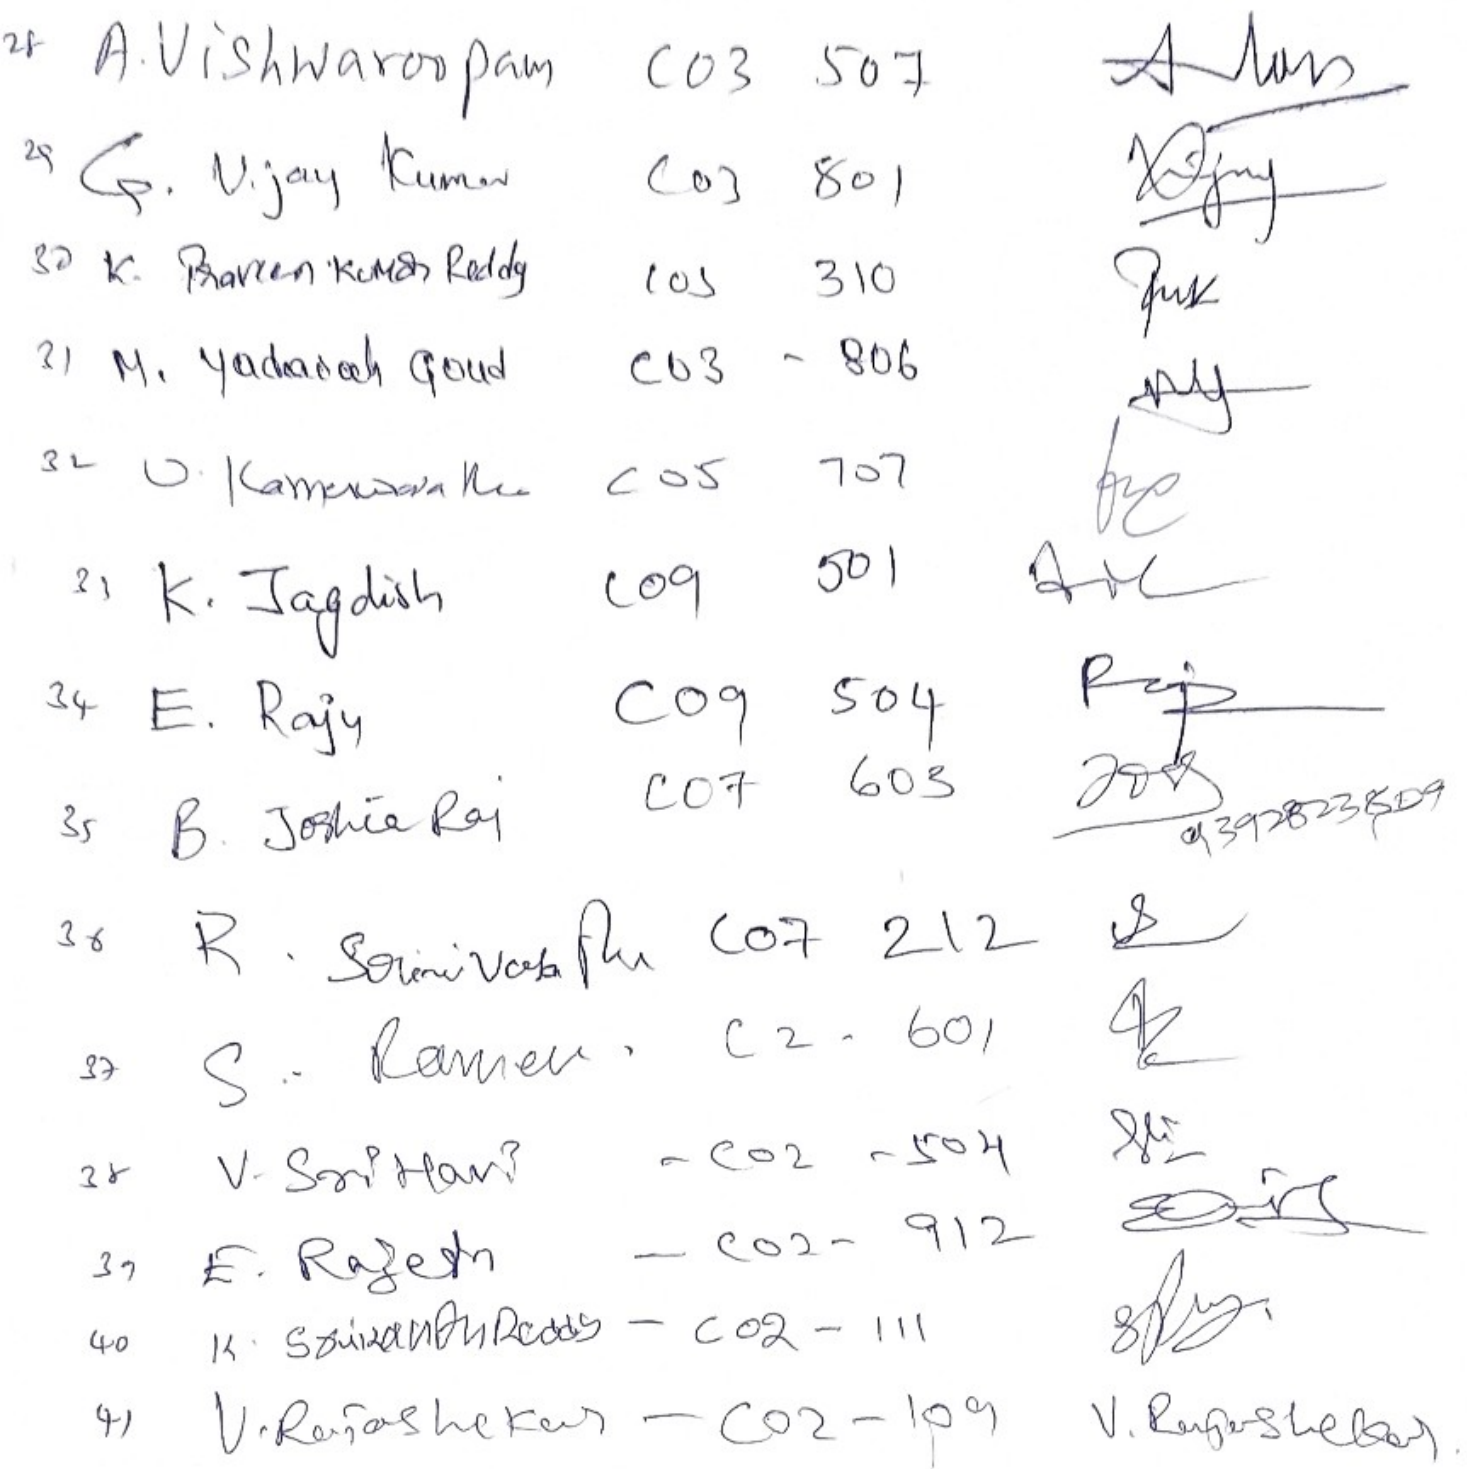 28 A. Vishwaroopam C03 507
29 G. Vijay Kumar C03 801 Vijay
30 K. Praveen Kumar Reddy C03 310
31 M. Yadaiah Goud C03 - 806
32 C05 707
33 K. Jagdish C09 501
34 E. Raju C09 504 Raju
35 B. Joshie Raj C07 603
36 R. C07 212
37 S. C2 - 601
38 V. SriHari - C02 - 504
39 E. Rajesh - C02 - 912
40 K. Srikanth Reddy - C02 - 111
41 V. Rajashekar - C02 - 109 V. Rajashekar.